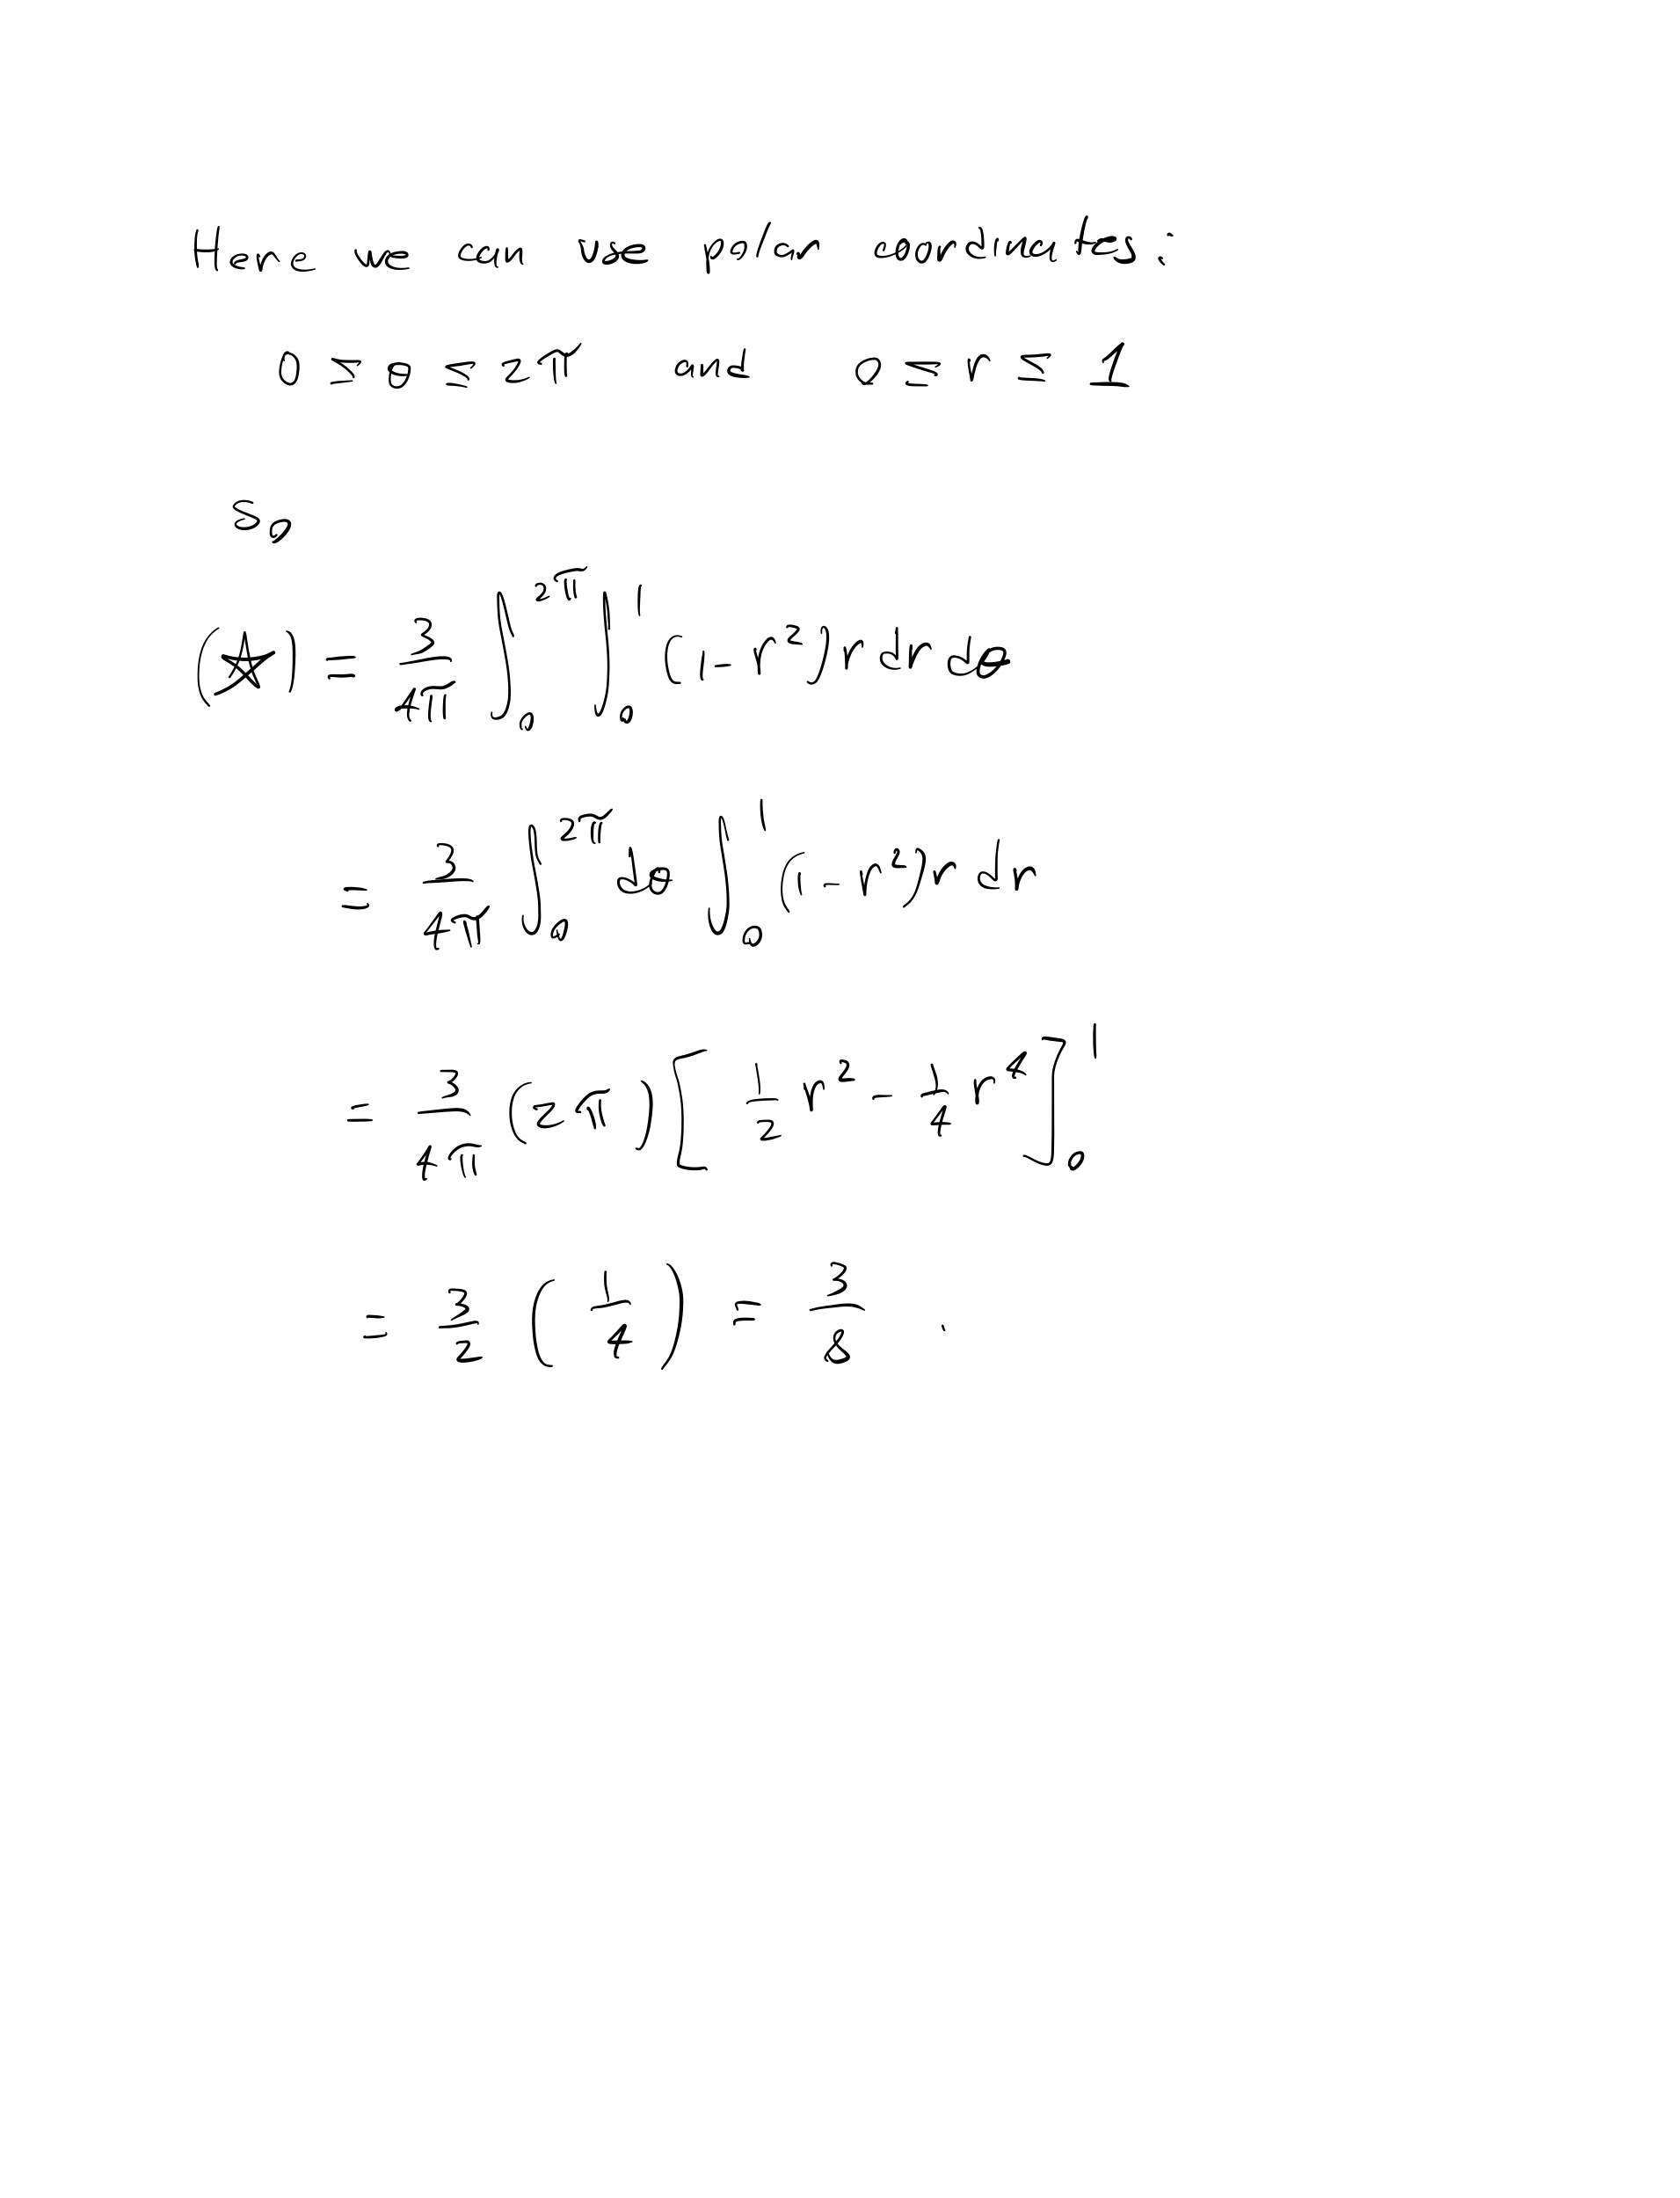 Here we can use polar coordinates:
0 ≤ θ ≤ 2π and 0 ≤ r ≤ 1
So
(☆) = 3/4π ∫₀^2π ∫₀^1 (1 - r²) r dr dθ
= 3/4π ∫₀^2π dθ ∫₀^1 (1 - r²) r dr
= 3/4π (2π) [ 1/2 r² - 1/4 r⁴ ]₀^1
= 3/2 ( 1/4 ) = 3/8 .